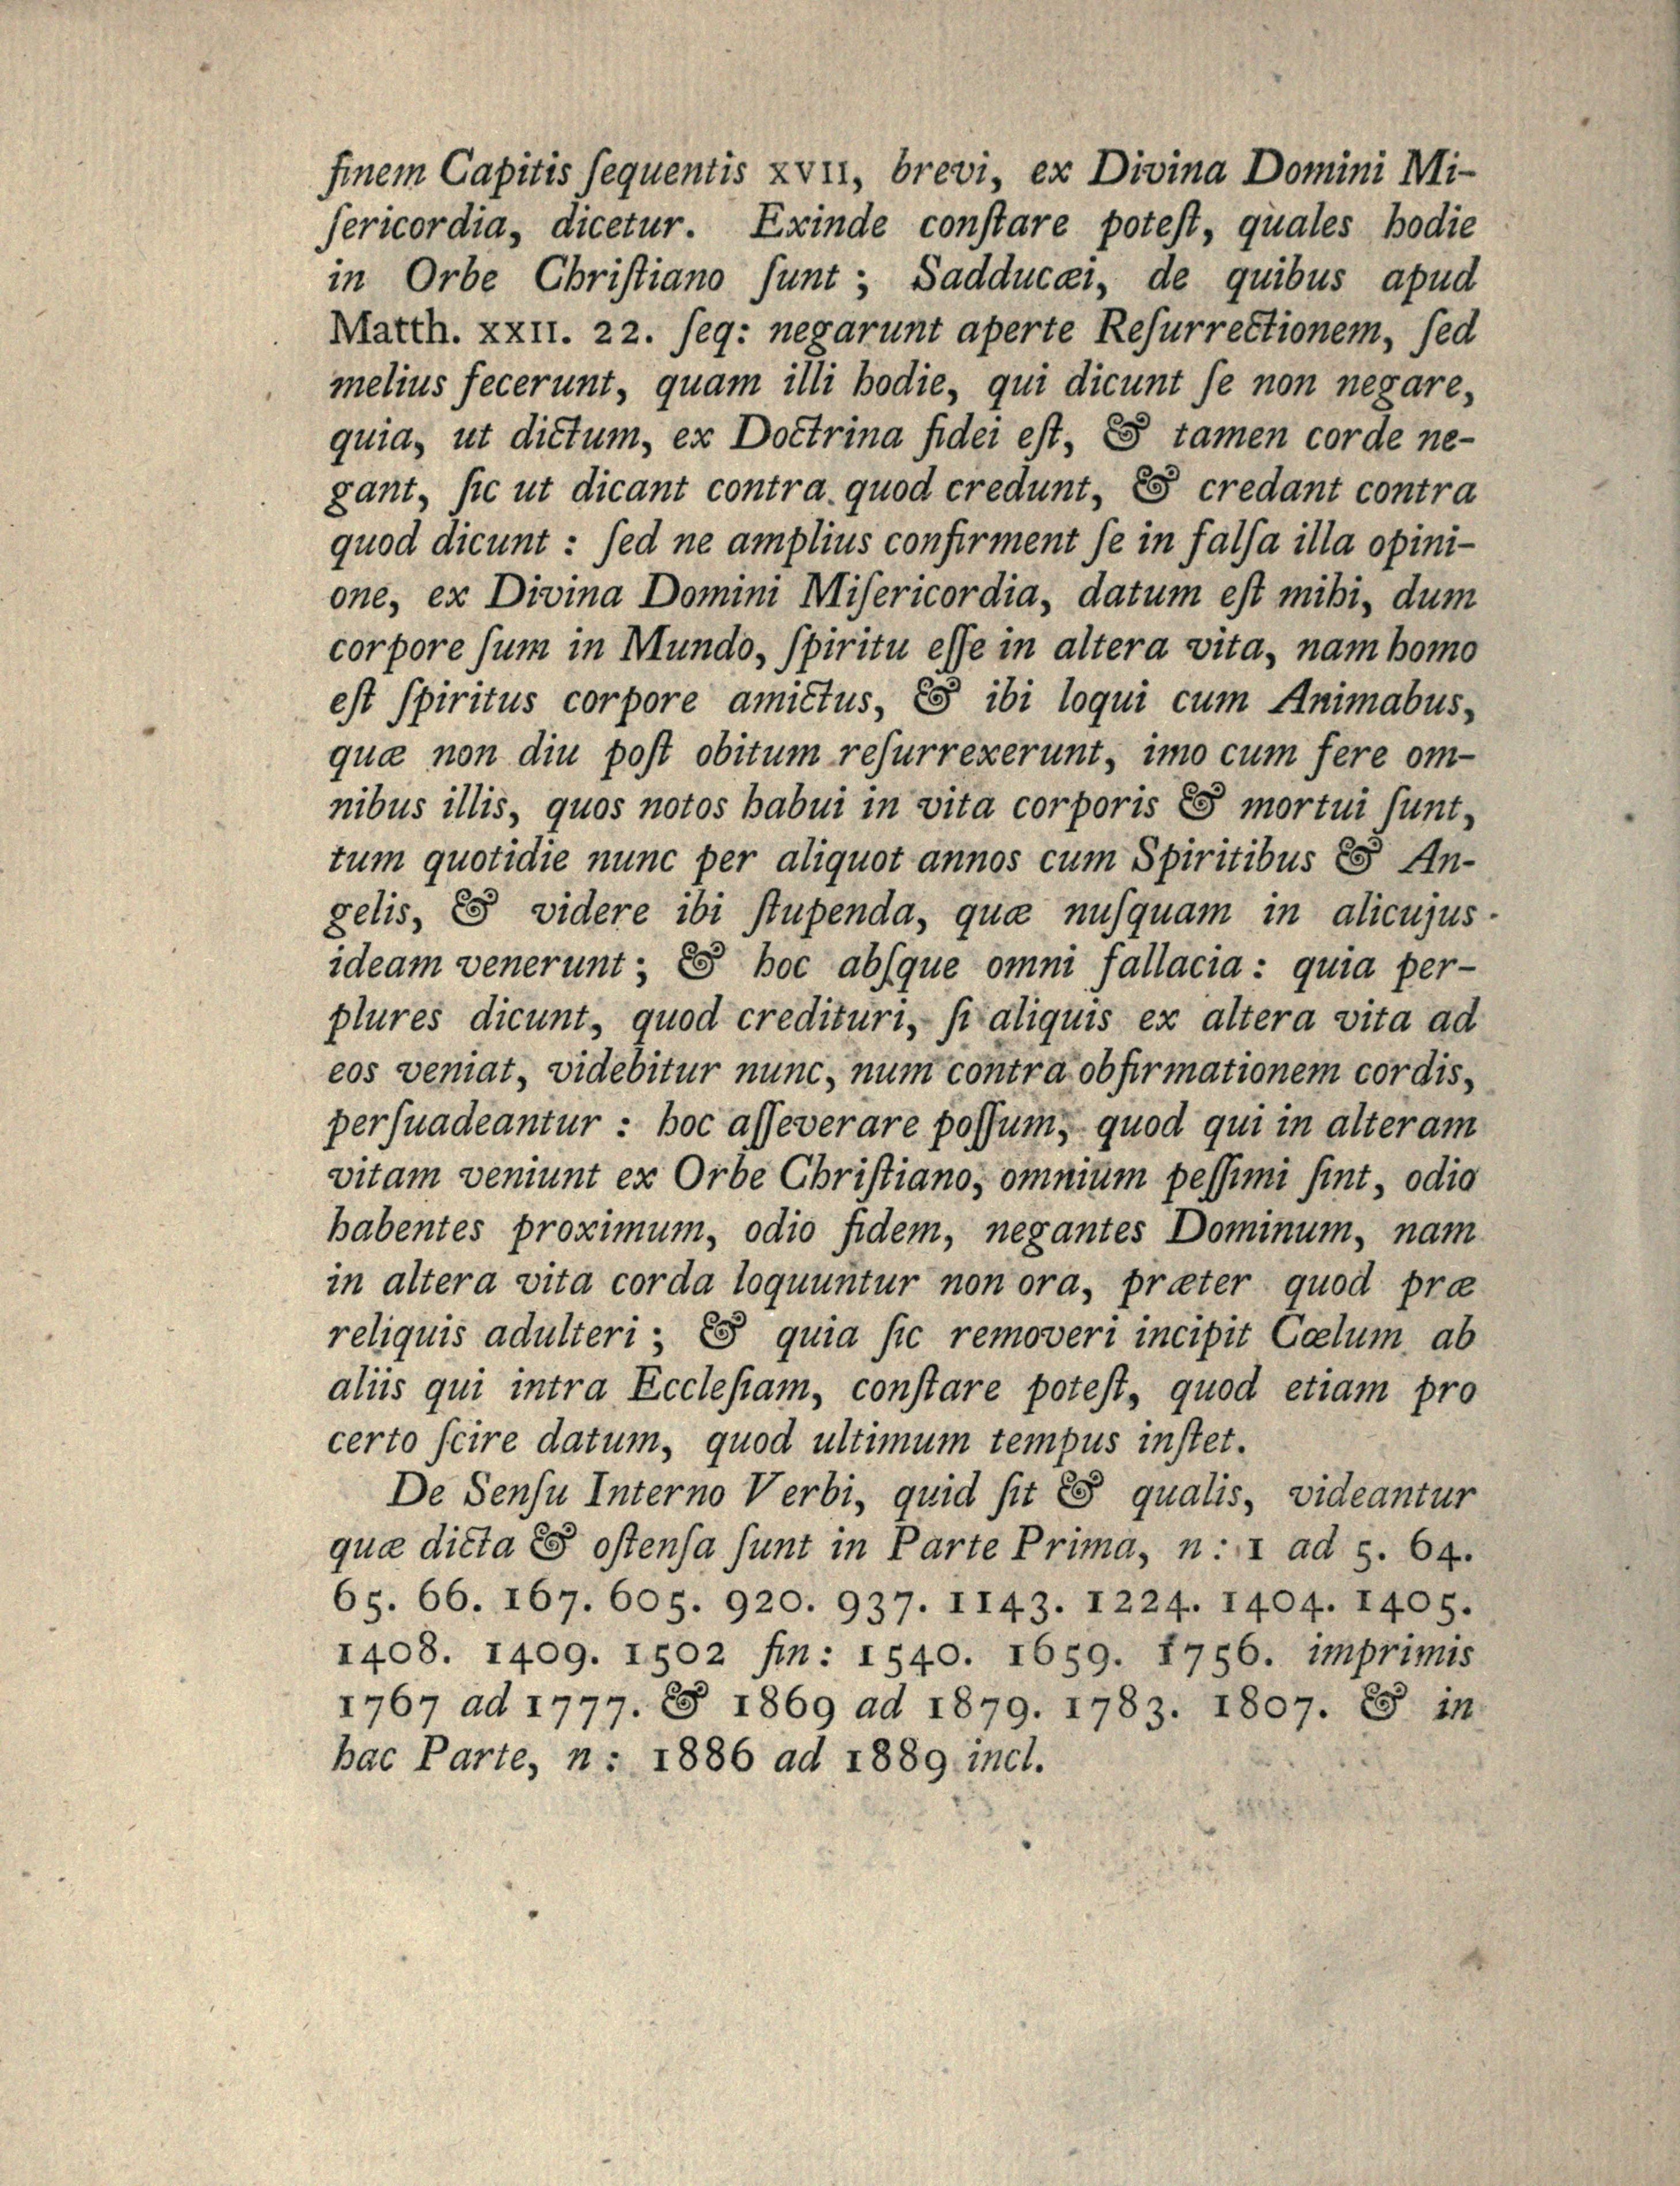 finem Capitis ſequentis XVII, brevi, ex Divina Domini Mi-
ſericordia, dicetur. Exinde conſtare poteſt, quales hodie
in Orbe Chriſtiano ſunt; Sadducæi, de quibus apud
Matth. XXII. 22. ſeq: negarunt aperte Reſurrectionem, ſed
melius fecerunt, quam illi hodie, qui dicunt ſe non negare,
quia, ut dictum, ex Doctrina fidei eſt, & tamen corde ne-
gant, ſic ut dicant contra quod credunt, & credant contra
quod dicunt: ſed ne amplius confirment ſe in falſa illa opini-
one, ex Divina Domini Miſericordia, datum eſt mihi, dum
corpore ſum in Mundo, ſpiritu eſſe in altera vita, nam homo
eſt ſpiritus corpore amictus, & ibi loqui cum Animabus,
quæ non diu poſt obitum reſurrexerunt, imo cum fere om-
nibus illis, quos notos habui in vita corporis & mortui ſunt,
tum quotidie nunc per aliquot annos cum Spiritibus & An-
gelis, & videre ibi ſtupenda, quæ nuſquam in alicujus
ideam venerunt; & hoc abſque omni fallacia: quia per-
plures dicunt, quod credituri, ſi aliquis ex altera vita ad
eos veniat, videbitur nunc, num contra obfirmationem cordis,
perſuadeantur: hoc aſſeverare poſſum, quod qui in alteram
vitam veniunt ex Orbe Chriſtiano, omnium peſſimi ſint, odio
habentes proximum, odio fidem, negantes Dominum, nam
in altera vita corda loquuntur non ora, præter quod præ
reliquis adulteri; & quia ſic removeri incipit Cœlum ab
aliis qui intra Eccleſiam, conſtare poteſt, quod etiam pro
certo ſcire datum, quod ultimum tempus inſtet.
De Senſu Interno Verbi, quid ſit & qualis, videantur
quæ dicta & oſtenſa ſunt in Parte Prima, n: 1 ad 5. 64.
65. 66. 167. 605. 920. 937. 1143. 1224. 1404. 1405.
1408. 1409. 1502 fin: 1540. 1659. 1756. imprimis
1767 ad 1777. & 1869 ad 1879. 1783. 1807. & in
hac Parte, n: 1886 ad 1889 incl.